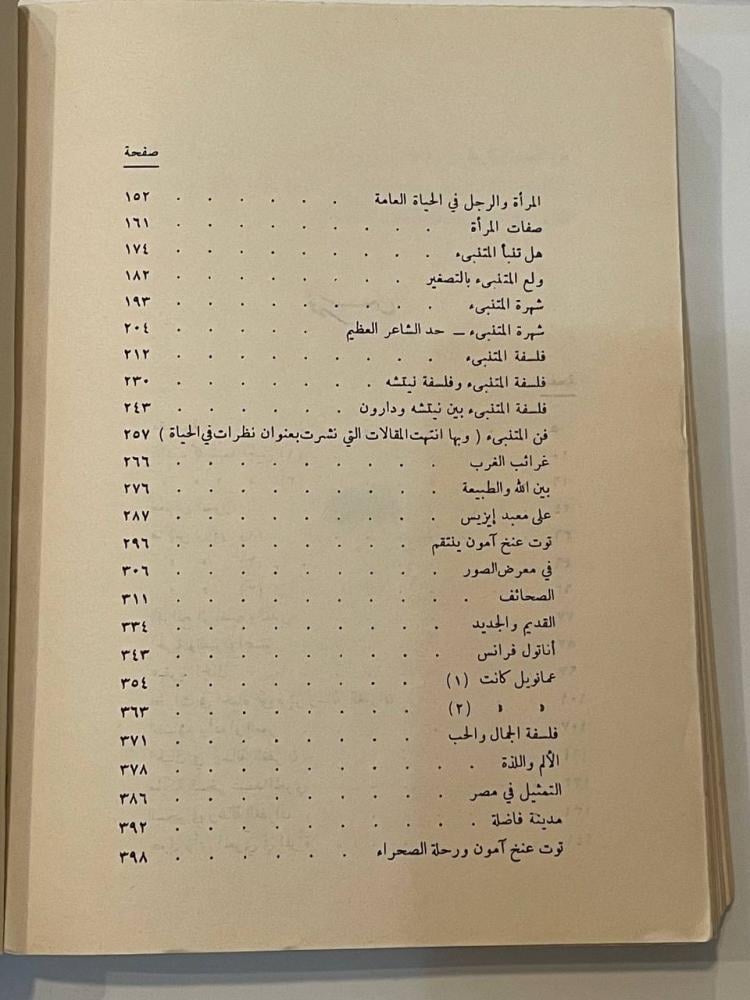 صفحة
المرأة والرجل في الحياة العامة . . . . . . ١٥٢
صفات المرأة . . . . . . . . . ١٦١
هل تنبأ المتنبىء . . . . . . . . . ١٧٤
ولع المتنبىء بالتصغير . . . . . . . . ١٨٢
شهرة المتنبىء . . . . . . . . ١٩٣
شهرة المتنبىء — حد الشاعر العظيم . . . . . ٢٠٤
فلسفة المتنبىء . . . . . . . . . ٢١٢
فلسفة المتنبىء وفلسفة نيتشه . . . . . . . ٢٣٠
فلسفة المتنبىء بين نيتشه ودارون . . . . . . ٢٤٣
فن المتنبىء ( وبها انتهت المقالات التي نشرت بعنوان نظرات في الحياة ) ٢٥٧
غرائب الغرب . . . . . . . . . ٢٦٦
بين الله والطبيعة . . . . . . . . . ٢٧٦
على معبد إيزيس . . . . . . . . . ٢٨٧
توت عنخ آمون ينتقم . . . . . . . . ٢٩٦
في معرض الصور . . . . . . . . . ٣٠٦
الصحائف . . . . . . . . . . ٣١١
القديم والجديد . . . . . . . . . ٣٣٤
أناتول فرانس . . . . . . . . . ٣٤٣
عمانويل كانت (١) . . . . . . . . ٣٥٤
» » (٢) . . . . . . . . ٣٦٣
فلسفة الجمال والحب . . . . . . . . ٣٧١
الألم واللذة . . . . . . . . . . ٣٧٨
التمثيل في مصر . . . . . . . . . ٣٨٦
مدينة فاضلة . . . . . . . . . . ٣٩٢
توت عنخ آمون ورحلة الصحراء . . . . . . ٣٩٨